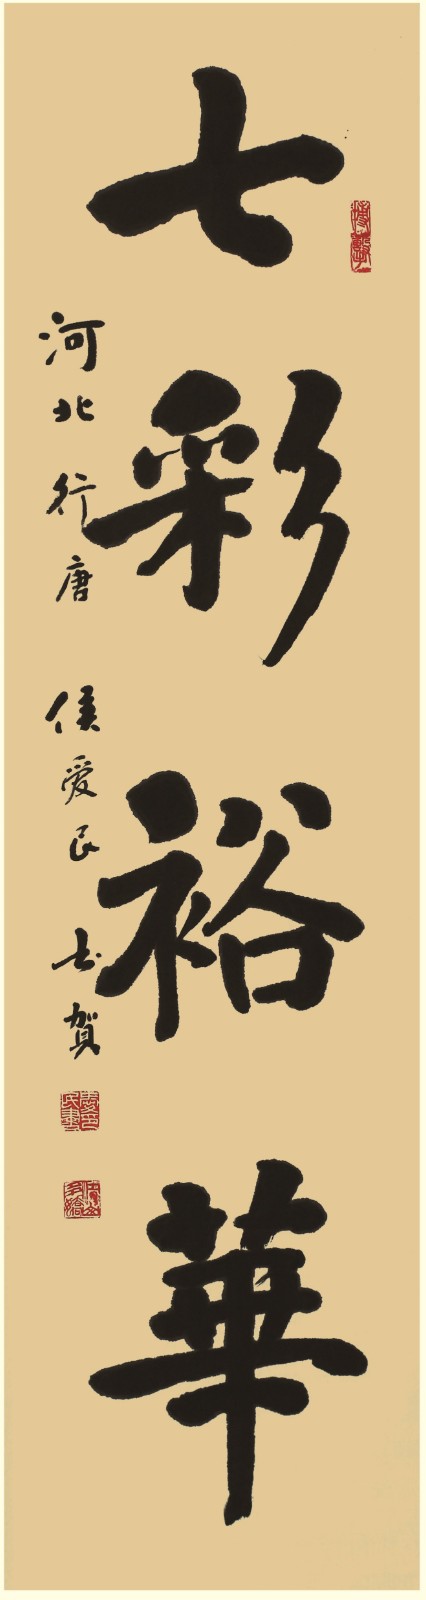 七彩裕華
河北 行唐 侯爱民 书賀